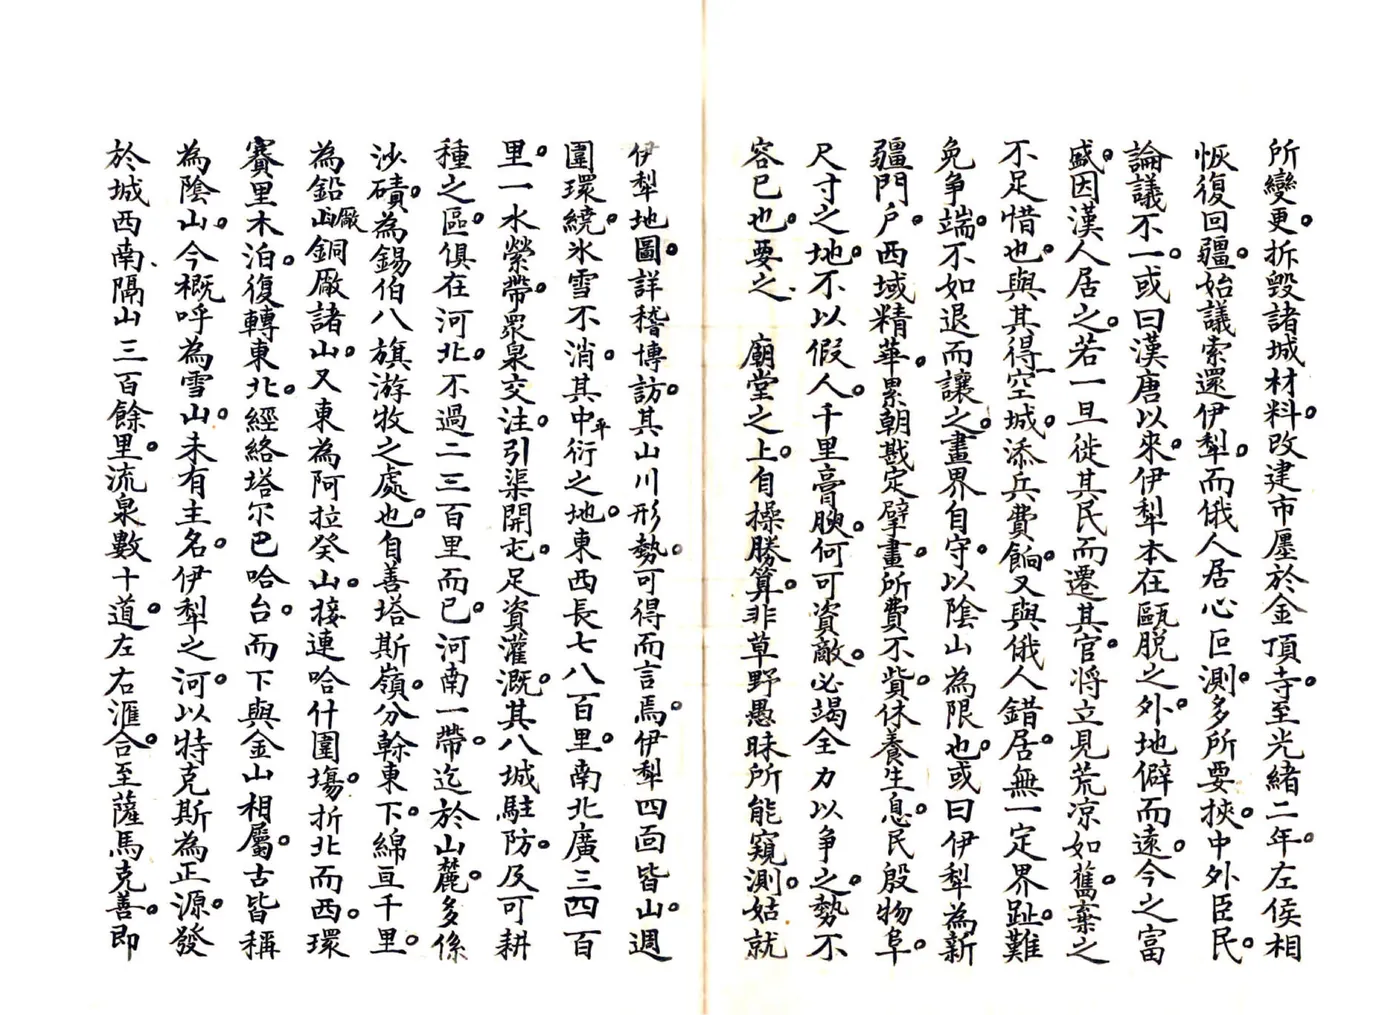 所變更。拆毀諸城材料。改建市廛於金頂寺。至光緒二年。左侯相
恢復回疆。始議索還伊犁。而俄人居心叵測。多所要挾。中外臣民。
論議不一。或曰漢唐以來。伊犁本在甌脫之外。地僻而遠。今之富
盛。因漢人居之。若一旦徙其民而遷其官。將立見荒涼如舊。棄之
不足惜也。與其得一空城。添兵費餉。又與俄人錯居。無一定界趾。難
免爭端。不如退而讓之。畫界自守。以陰山為限也。或曰伊犁為新
疆門戶。西域精華。累朝戡定擘畫。所費不貲。休養生息。民殷物阜。
尺寸之地。不以假人。千里膏腴。何可資敵。必竭全力以爭之。勢不
容已也。要之、廟堂之上。自操勝算。非草野愚昧所能窺測。姑就
伊犁地圖。詳稽博訪。其山川形勢。可得而言焉。伊犁四面皆山。週
圍環繞。氷雪不消。其中平衍之地。東西長七八百里。南北廣三四百
里。一水縈帶。眾泉交注。引渠開屯。足資灌溉。其八城駐防。及可耕
種之區。俱在河北。不過二三百里而已。河南一帶。迄於山麓。多係
沙磧。為錫伯八旗游牧之處也。自善塔斯嶺。分榦東下。綿亘千里。
為鉛廠山銅廠諸山。又東為阿拉癸山。接連哈什圍場。折北而西。環
賽里木泊。復轉東北。經絡塔尔巴哈台。而下與金山相屬。古皆稱
為陰山。今概呼為雪山。未有主名。伊犁之河。以特克斯為正源。發
於城西南、隔山三百餘里。流泉數十道。左右滙合。至薩馬克善。即